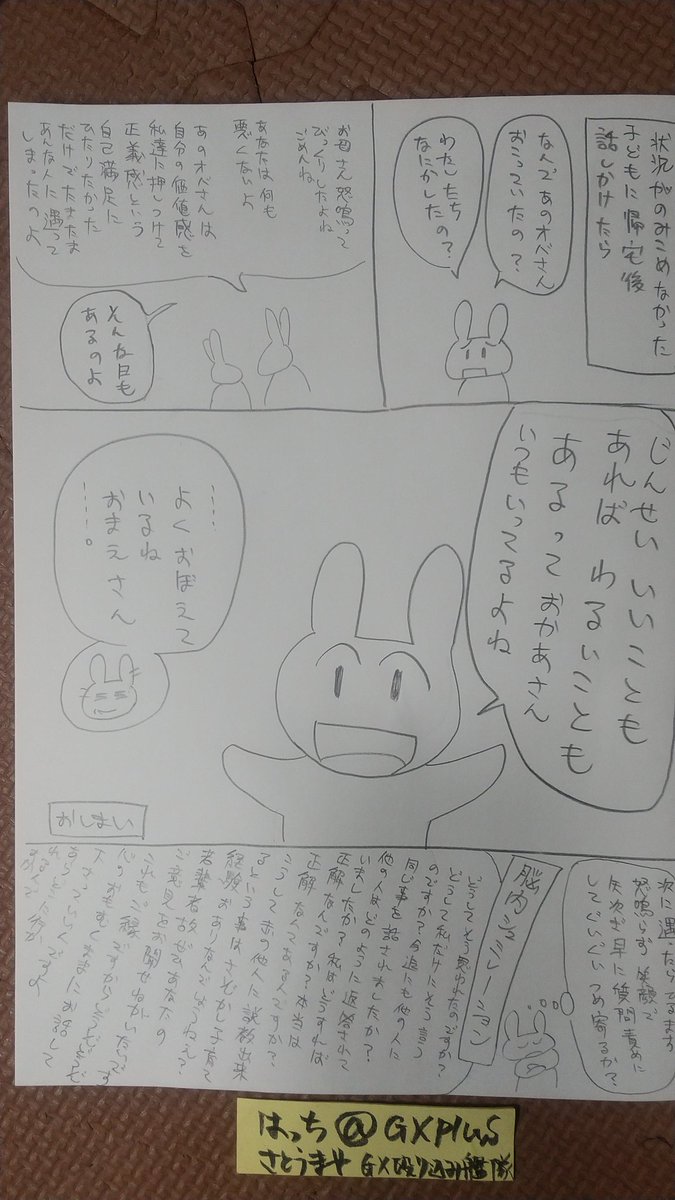 状況がのみこめなかった
子どもに帰宅後
話しかけたら
なんであのオバさん
おこっていたの？
わたしたち
なにかしたの？
お母さん怒鳴って
びっくりしたよね
ごめんね
あなたは何も
悪くないよ
あのオバさんは
自分の価値感を
私達に押しつけて
正義感という
自己満足に
ひたりたかった
だけでたまたま
あんな人に遇って
しまったのよ
そんな日も
あるのよ
じんせいいいことも
あれば わるいことも
あるっておかあさん
いつもいってるよね
……
よくおぼえて
いるね
おまえさん
……。
おしまい
次に遇ったらてます
怒鳴らず 笑顔で
矢次ぎ早に質問責めに
してぐいぐいつめ寄るか？
脳内シュミレーション
どうしてそう思われたのですか？
どうして私だけにそう言う
のですか？今迄にも他の人に
同じ事を話されましたか？
他の人はどのように返答されて
いましたか？私はどうすれば
正解なんですか？本当は
正解なんてあるんですか？
こうして赤の他人に説教出来
るという事はさぞかし子育て
経験がおありなんでしょうねえ？
若輩者故ぜひあなたの
ご意見をお聞せねがいたいです
これもご縁ですからどんぞどんぞ
心のおもむくままにお話して
下さっていいんですよ
はっち@GXplus
さとうまや GX殴り込み艦隊